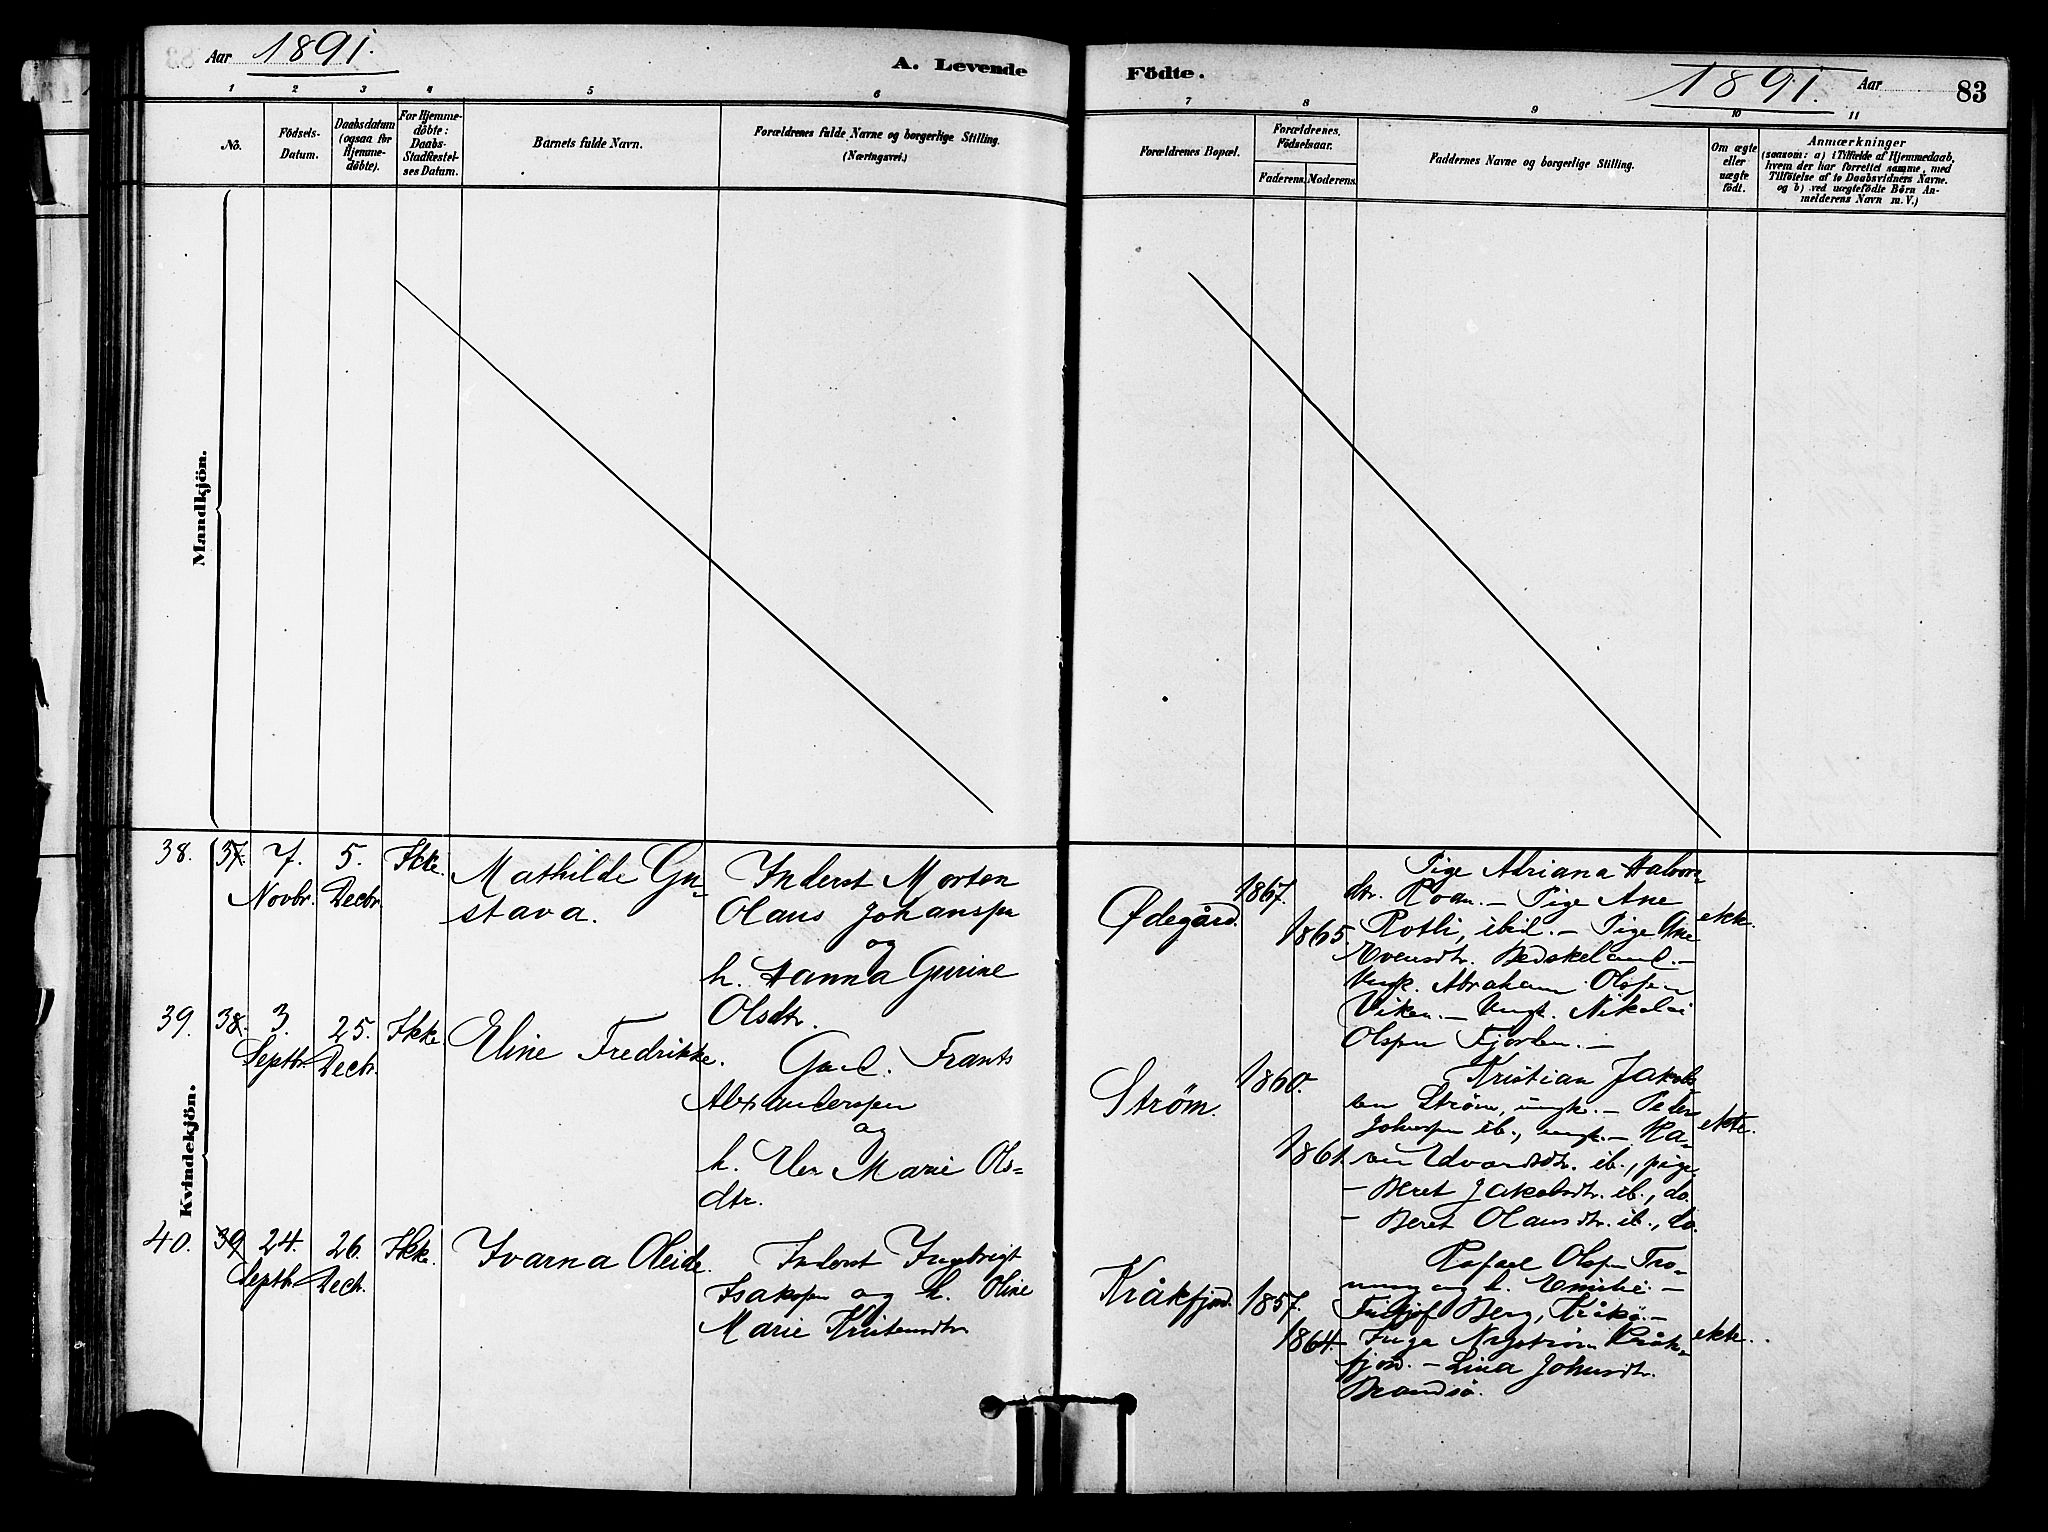 Aar 1891.
A. Levende
Fødte.
1891. Aar
83
1 2 3 4 5 6
7 8 9 10 11
No.
Födsels-
Datum.
Daabsdatum
(ogsaa for
Hjemme-
döbte).
For Hjemme-
döbte:
Daabs-
Stadfæstel-
ses Datum.
Barnets fulde Navn.
Forældrenes fulde Navne og borgerlige Stilling.
(Næringsvei.)
Forældrenes Bopæl.
Forældrenes,
Födselsaar.
Faderens. Moderens.
Faddernes Navne og borgerlige Stilling.
Om ægte
eller
uægte
födt.
Anmærkninger
(saasom: a) i Tilfælde af Hjemmedaab,
hvem der har forrettet samme, med
Tilföielse af to Daabsvidners Navne.
og b) ved uægtefödte Börn An-
melderens Navn m. V.)
Mandkjön.
Kvindekjön.
38. 37. 7.
Novbr.
5.
Decbr.
Ikke.
Mathilde Gu-
stava.
Inderst Morten
Olaus Johanssen
og
h. Hanna Gurine
Olsdtr.
Ødegård.
1867.
1865.
Pige Adriana Halvors-
dtr. Roan. — Pige Ane
Rotli, ibid. — Pige Ane
Evensdtr. Beskeland. —
Ungk. Abraham Olssen
Viken. — Ungk. Nikolai
Olssen Fjorden. —
ekte.
39. 38. 3.
Septbr.
25.
Decbr.
Ikke
Eline Fredrikke.
Gaul. Frants
Alexanderssen
og
h. Elen Marie Ols-
dtr.
Strøm.
1860.
1861.
Kristian Jakob-
sen Strøm, ungk. — Peder
Johnssen ib., ungk. — Ka-
ren Edvardsdtr. ib., pige
— Beret Jakobsdtr. ib., do.
— Beret Olausdtr. ib., do.
ekte.
40. 39 24.
Septbr.
26.
Decbr.
Ikke.
Ivarna Oleide.
Inderst Ingebrigt
Isakssen og h. Oline
Marie Kristensdtr.
Kråkfjord.
1857.
1864.
Rafael Olssen Tro-
nung og h. Emilie. —
Fridtjof Berg, Kråkø. —
Inga Nystrøm Kråk-
fjord. — Lina Johnsdtr.
Brandsø.
ekte.